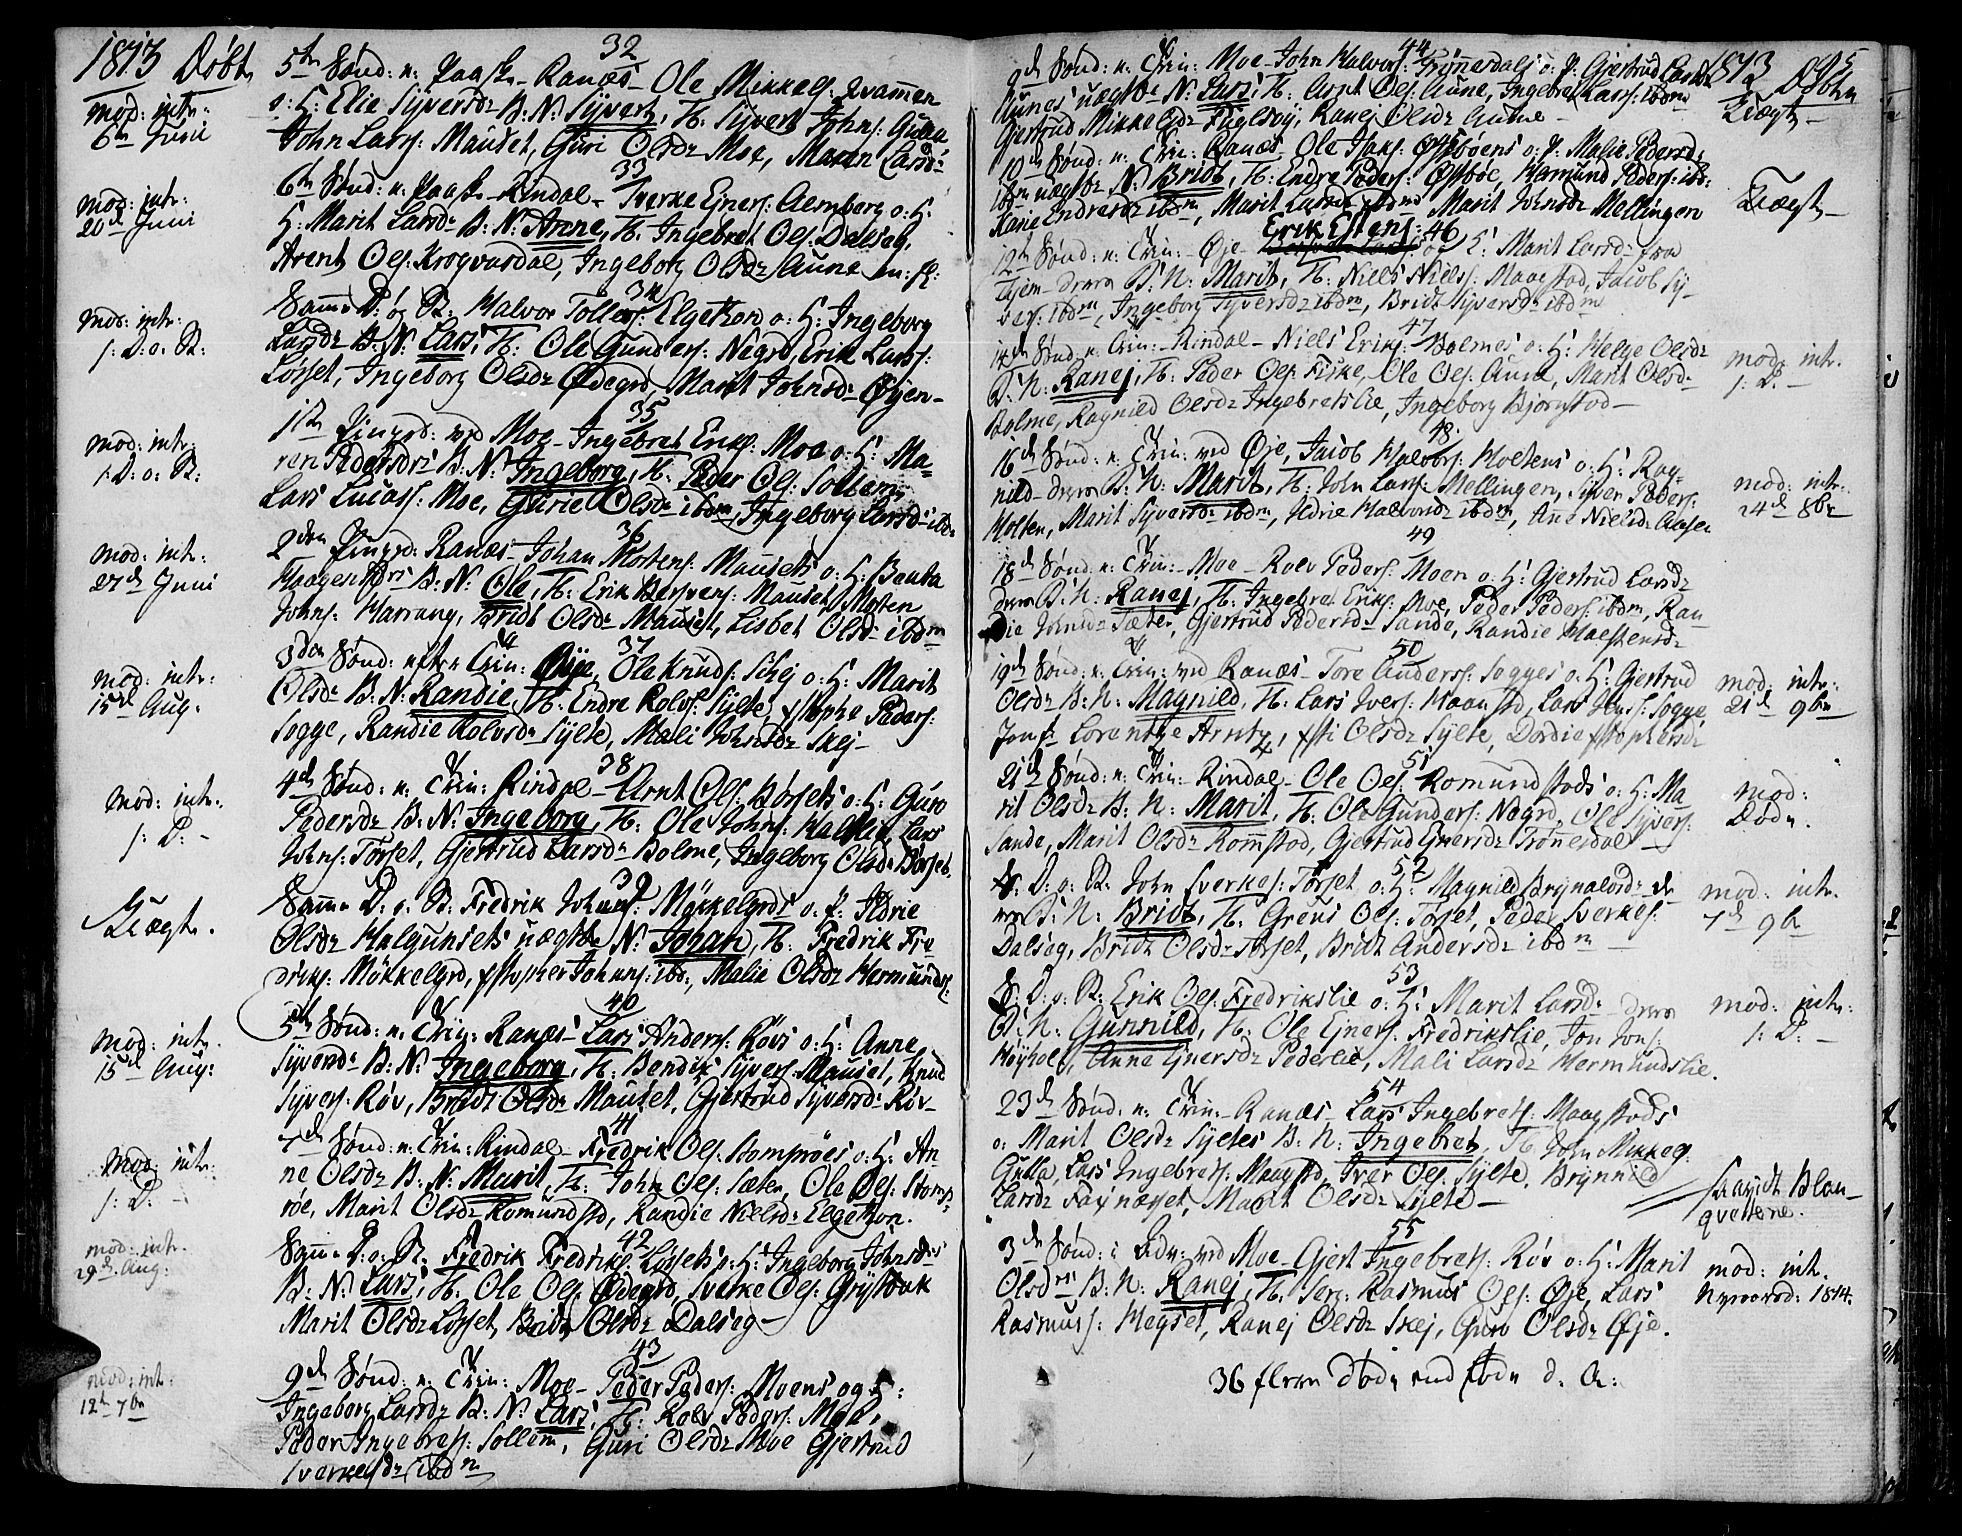 1813 Døbte
32
5te Sønd: n: Paaske - Ranæs - Ole Mikkels: Qvammen
o: H: Elie Syversdr B: N: Syvert, T: Syvert Johns: Gulla,
John Larss: Mauset, Guri Olsdr Moe, Maren Larsdr
mod: intr:
6te Juni
33
6te Sønd: n: Paaske - Rindal - Sverke Ejners: Aemberg o: H:
H: Marit Larsdr B: N: Arne, T: Ingebret Ols: Dalseg,
Arent Ols: Krogvasdal, Ingeborg Olsdr Aune
mod: intr:
20de Juni
34
Samme D: og St: Halvor Tollefs: Elgetron o: H: Ingeborg
Larsdr B: N: Lars, T: Ole Gunders: Negrd, Erik Larss:
Løsset, Ingeborg Olsdr Ødegrd, Marit Johnsdr Øyen -
mod: intr:
s: D: o: St:
35
1ste Pinsed: ved Moe - Ingebret Eriks: Moe o: H: Ma-
ren Pedersdr B: N: Ingeborg, T: Peder Ols: Sollem,
Lars Lucass: Moe, Gurie Olsdr ibdm, Ingeborg Larsdr ibdm
mod: intr:
s: D: o: St:
36
2den Pinsed: Ranæs - Johan Mortens: Mausets o: H: Benta
Haagensdr B: N: Ole, T: Erik Hersvens: Mauset, Morten
Johns: Harrang, Bridt Olsdr Mauset, Lisbet Olsdr ibdm
mod: intr:
27de Juni
37
3den Sønd: efter Trin: Øye, Ole Knuds: Skej o: H: Marit
Olsdr B: N: Randie, T: Endre Rolvs: Sylte, Peders:
Sogge, Randie Rolvsdr Sylte, Mali Johnsdr Skej -
mod: intr:
15de Aug.
38
4de Sønd: n: Trin: Rindal - Arnt Ols: Børsets o: H: Guro
Pedersdr B: N: Ingeborg, T: Ole Johns: Lars
Johns: Torset, Gjertrud Larsdr Bolme, Ingeborg Olsdr Børset
mod: intr:
s: D: -
39
Samme D: o: St: Fredrik Johans: Møkkelgrds o: P: Ildrie
Olsdr Halgunsets uægte N: Johan, T: Fredrik Fre
driks: Møkkelgrd, Johans: ibd:, Malie Olsdr Hermunds:
Uægte.
40
5te Sønd: n: Trin: Ranæs - Lars Anders: Røvs o: H: Anne
Syversdr B: N: Ingeborg, T: Bendik Syvers: Mauset, Knud
Syvers: Røv, Bridt Olsdr Mauset, Gjertrud Syversdr Røv -
mod: intr.
15de Aug:
41
7de Sønd: n: Trin: Rindal - Fredrik Ols: Stomprøes o: H: An-
ne Olsdr B: N: Marit, T: John Ols: Sæter, Ole Ols: Stomp-
røe, Marit Olsdr Romundstd, Randie Nielsdr Elgetron.
mod: intr:
s: D: -
42
Samme D: o: St: Fredrik Fredriks: Løssets o: H: Ingeborg Johnsdr
B: N: Lars, T: Ole Ols: Ødegrd, Sverke Ols: Grytbak
Marit Olsdr Løsset, Bridt Olsdr Dalseg -
mod: intr.
29de Aug:
43
9de Sønd: n: Trin: Moe - Peder Peders: Moens og H:
Ingeborg Larsdr B: N: Lars, T: Rolv Peders: Moe,
Peder Ingebrets: Sollem, Guri Olsdr Moe Gjertrud
Sverkesdr ibdm
mod: intr:
12te 7br
1813 Døbte
44
9de Sønd: n: Trin: Moe - John Halvors: Trönesdals o: P: Gjertrud Larsdr
Aunes uægte N: Lars, T: Arnt Ols: Aune, Ingebret Larss: ibdm
Gjertrud Mikkelsdr Fuglsöy, Ranej Olsdr Aune -
Uægte -
45
10de Sønd: n: Trin: Ranæs - Ole Isaks: Østbøens o: P: Malie Pedersdr
ibdm uægte N: Bridt, T: Endre Peders: Østbøe, Hermund Peders: ibd:
Karie Endresdr ibdm, Marit Larsdr ibdm Marit Johnsdr Mellingen
Uægte -
46
12te Sønd: n: Trin: Øje Erik Estens: o: H: Marit Larsdr fra
Hjem - deres B: N: Marit, T: Niels Niels: Maagstad, Jacob Sy-
vers: ibdm, Ingeborg Syversdr ibdm, Bridt Syversdr ibdm
47
14de Sønd: n: Trin: - Rindal - Niels Eriks: Bolmes o: H: Helge Olsdr
B: N: Ranej, T: Peder Ols: Fiske, Ole Ols: Aune, Marit Olsdr
Bolme, Ragnild Olsdr Ingebretslie, Ingeborg Bjørnstad -
mod: intr.
s: D. -
48.
16de Sønd: n: Trin: ved Øje, Jacob Halvors: Holtens o: H: Rag-
nild - deres B: N: Marit, T: John Larss: Mellingen, Syver Peders:
Holten, Marit Syversdr ibdm, Ildrie Halvorsdr ibdm, Anne Nielsdr
mod: intr:
24de 8br
49
18de Sønd: n: Trin: - Moe - Rolv Peders: Moen o: H: Gjertrud Larsdr
deres B: N: Ranej, T: Ingebret Eriks: Moe, Peder Peders: ibdm, Ran
die Johnsdr Sæter, Gjertrud Pedersdr Sande, Randie
50
19de Sønd: n: Trin: ved Ranæs - Tore Anders: Sogges o: H: Gjertrud
Olsdr B: N: Magnild, T: Lars Ivers: Haanstd, Lars Sogge,
Jomfr Lorentze Arntz, Olsdr Sylte, Dordie
mod: intr:
21de 9br
51
21de Sønd: n: Trin: - Rindal - Ole Ols: Romundstads o: H: Ma
rit Olsdr B: N: Marit, T: Ole Gunders: Negrd, Ole Syvers:
Sande, Marit Olsdr Romstad, Gjertrud Ejnersdr Trönnesdal -
mod:
Døde.
52
S: D: o: St: John Sverkes: Torset o: H: Magnild Brynildsdr de
res B: N: Bridt, T: Grens Ols: Torset, Peder Sverkes:
Dalseg, Bridt Olsdr Torset, Bridt Andersdr ibdm -
mod: intr:
7de 9br
53
S: D: o: St: Erik Ols: Fredrikslie o: H: Marit Larsdr deres
B: N: Gunnild, T: Ole Ejners: Fredrikslie, Jon Jons:
Høyholt, Anne Ejnersdr Pederslie, Mali Larsdr Hermundslie.
mod: intr:
s: D: -
54
23de Sønd: n: Trin: - Ranæs - Lars Ingebrets: Maagstads
o: Marit Olsdr Syltes B: N: Ingebret, T: John Mikkels:
Gulla, Lars Ingebrets: Maagstd, Iver Ols: Sylte, Brynnild
Larsdr Foxnæsset, Marit Olsdr Sylte -
qvetterne.
55
3de Sønd: i Adv: ved Moe - Gjert Ingebrets: Røv o: H: Marit
Olsdr B: N: Ranej, T: Serg: Rasmus Ols: Øje, Lars
Rasmuss: Megset, Ranej Olsdr Skej, Guro Olsdr Øje.
mod: intr.
Nyaarsd: 1814.
36 flere døde end fødte d: A: